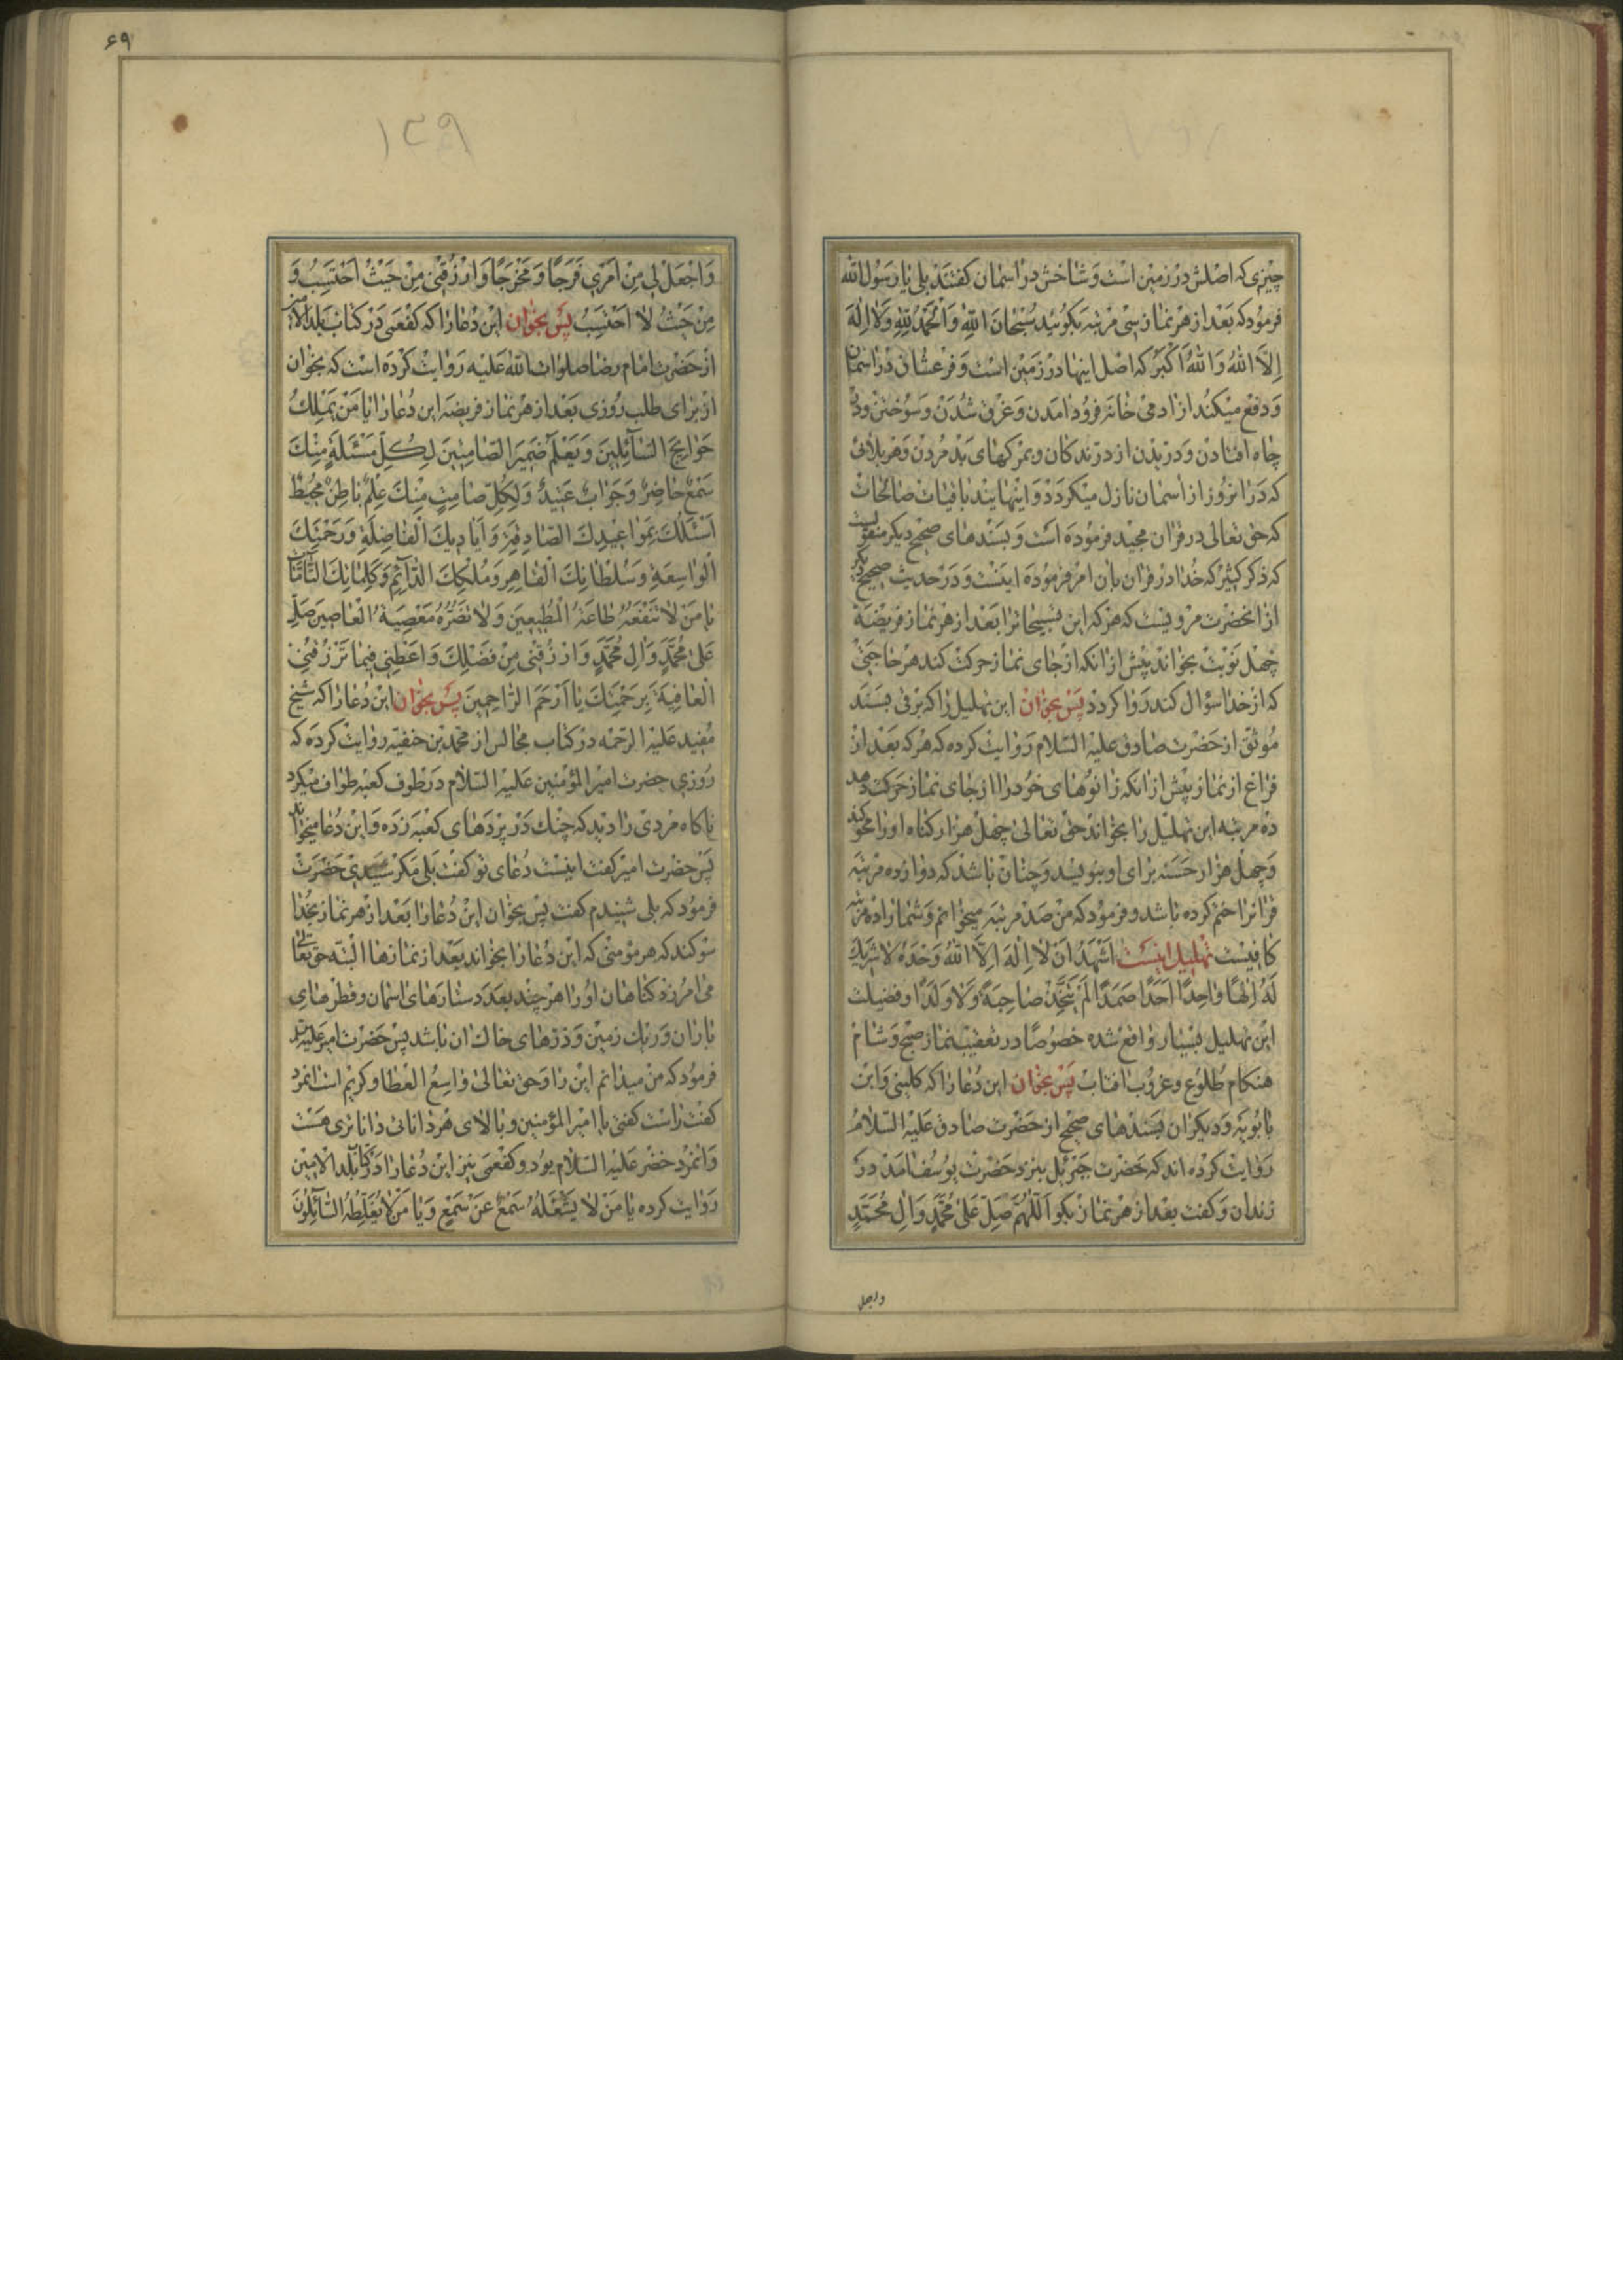 چیزی که اصلش در زمین است و شاخش در اسمان کفتند بلی یا رسول الله
فرمود که بعد از هر نماز سی مرتبه بکوئید سُبْحانَ اللّهِ وَ الْحَمْدُ لِلّهِ وَ لا اِلهَ
اِلاَّ اللّهُ وَ اللّهُ اَکْبَرُ که اصل اینها در زمین است و فرعشان در اسمان
و دفع میکند از ادمی خانه فرود امدن و غرق شدن و سوختن و در
چاه افتادن و دریدن از درندکان و مرکهای بد مردن و هر بلائی
که در انروز از اسمان نازل میکردد و اینهایند باقیات صالحات
که حق تعالی در قران مجید فرموده است و بسندهای صحیح دیکر منقولست
که ذکر کثیر که خدا در قران بان امر فرموده اینست و در حدیث صحیح دیکر
از انحضرت مرویست که هر که این تسبیحاترا بعد از هر نماز فریضه
چهل نوبت بخواند پیش از انکه از جای نماز حرکت کند هر حاجتی
که از خدا سؤال کند روا کردد پس بخوان این تهلیل را که برقی بسند
موثق از حضرت صادق علیه السلام روایت کرده که هر که بعد از
فراغ از نماز پیش از انکه زانوهای خود را از جای نماز حرکت دهد
ده مرتبه این تهلیل را بخواند حق تعالی چهل هزار کناه او را محو کند
و چهل هزار حسنه برای او بنویسد و چنان باشد که دوازده مرتبه
قرانرا ختم کرده باشد و فرمود که من صد مرتبه میخوانم و شما را ده مرتبه
کافیست تهلیل اینست اَشْهَدُ اَنْ لا اِلهَ اِلاَّ اللّهُ وَحْدَهُ لا شَریكَ
لَهُ اِلهًا واحِدًا اَحَدًا صَمَدًا لَمْ یَتَّخِذْ صاحِبَةً وَلا وَلَدًا و فضیلت
این تهلیل بسیار واقع شده خصوصا در تعقیب نماز صبح و شام
هنکام طلوع و غروب افتاب پس بخوان این دعا را که کلینی و ابن
بابویه و دیکران بسندهای صحیح از حضرت صادق علیه السلام
روایت کرده اند که حضرت جبرئیل بنزد حضرت یوسف امد در
زندان و کفت بعد از هر نماز بکو اَللّهُمَّ صَلِّ عَلی مُحَمَّدٍ وَ الِ مُحَمَّدٍ
واجعل
۶۹
۱۲۹
وَ اجْعَلْ لی مِنْ اَمْری فَرَجًا وَ مَخْرَجًا وَ ارْزُقْنی مِنْ حَیْثُ اَحْتَسِبُ وَ
مِنْ حَیْثُ لا اَحْتَسِبُ پس بخوان این دعا را که کفعمی در کتاب بلد الامین
از حضرت امام رضا صلوات الله علیه روایت کرده است که بخوان
از برای طلب روزی بعد از هر نماز فریضه این دعا را یا مَنْ یَمْلِكُ
حَوائِجَ السّآئِلینَ وَ یَعْلَمُ ضَمیرَ الصّامِتینَ لِکُلِّ مَسْئَلَةٍ مِنْكَ
سَمْعٌ حاضِرٌ وَ جَوابٌ عَتیدٌ وَ لِکُلِّ صامِتٍ مِنْكَ عِلْمٌ باطِنٌ مُحیطٌ
اَسْئَلُكَ بِمَواعیدِكَ الصّادِقَةِ وَ اَیادیكَ الْفاضِلَةِ وَ رَحْمَتِكَ
الْواسِعَةِ وَ سُلْطانِكَ الْقاهِرِ وَ مُلْکِكَ الدّآئِمِ وَ کَلِماتِكَ التّآمّاتِ
یا مَنْ لا تَنْفَعُهُ طاعَةُ الْمُطیعینَ وَ لا تَضُرُّهُ مَعْصِیَةُ الْعاصینَ صَلِّ
عَلی مُحَمَّدٍ وَ الِ مُحَمَّدٍ وَ ارْزُقْنی مِنْ فَضْلِكَ وَ اَعْطِنی فیما تَرْزُقُنی
الْعافِیَةَ بِرَحْمَتِكَ یا اَرْحَمَ الرّاحِمینَ پس بخوان این دعا را که شیخ
مفید علیه الرحمه در کتاب مجالس از محمد بن حنفیه روایت کرده که
روزی حضرت امیر المؤمنین علیه السلام در طوف کعبه طواف میکرد
ناکاه مردی را دید که چنك در پردهای کعبه زده و این دعا میخواند
پس حضرت امیر کفت اینست دعای تو کفت بلی مکر شنیدی حضرت
فرمود که بلی شنیدم کفت پس بخوان این دعا را بعد از هر نماز بخدا
سوکند که هر مؤمنی که این دعا را بخواند بعد از نمازها البته حق تعالی
می امرزد کناهان او را هر چند بعدد ستارهای اسمان و قطرهای
باران و ریك زمین و ذرهای خاك ان باشد پس حضرت امیر علیه السلام
فرمود که من میدانم این را و حق تعالی واسع العطا و کریم است انمرد
کفت راست کفتی یا امیر المؤمنین و بالای هر دانائی داناتری هست
و انمرد خضر علیه السلام بود و کفعمی نیز این دعا را در کتاب بلد الامین
روایت کرده یا مَنْ لا یَشْغَلُهُ سَمْعٌ عَنْ سَمْعٍ وَ یا مَنْ لا یُغَلِّطُهُ السّآئِلُونَ